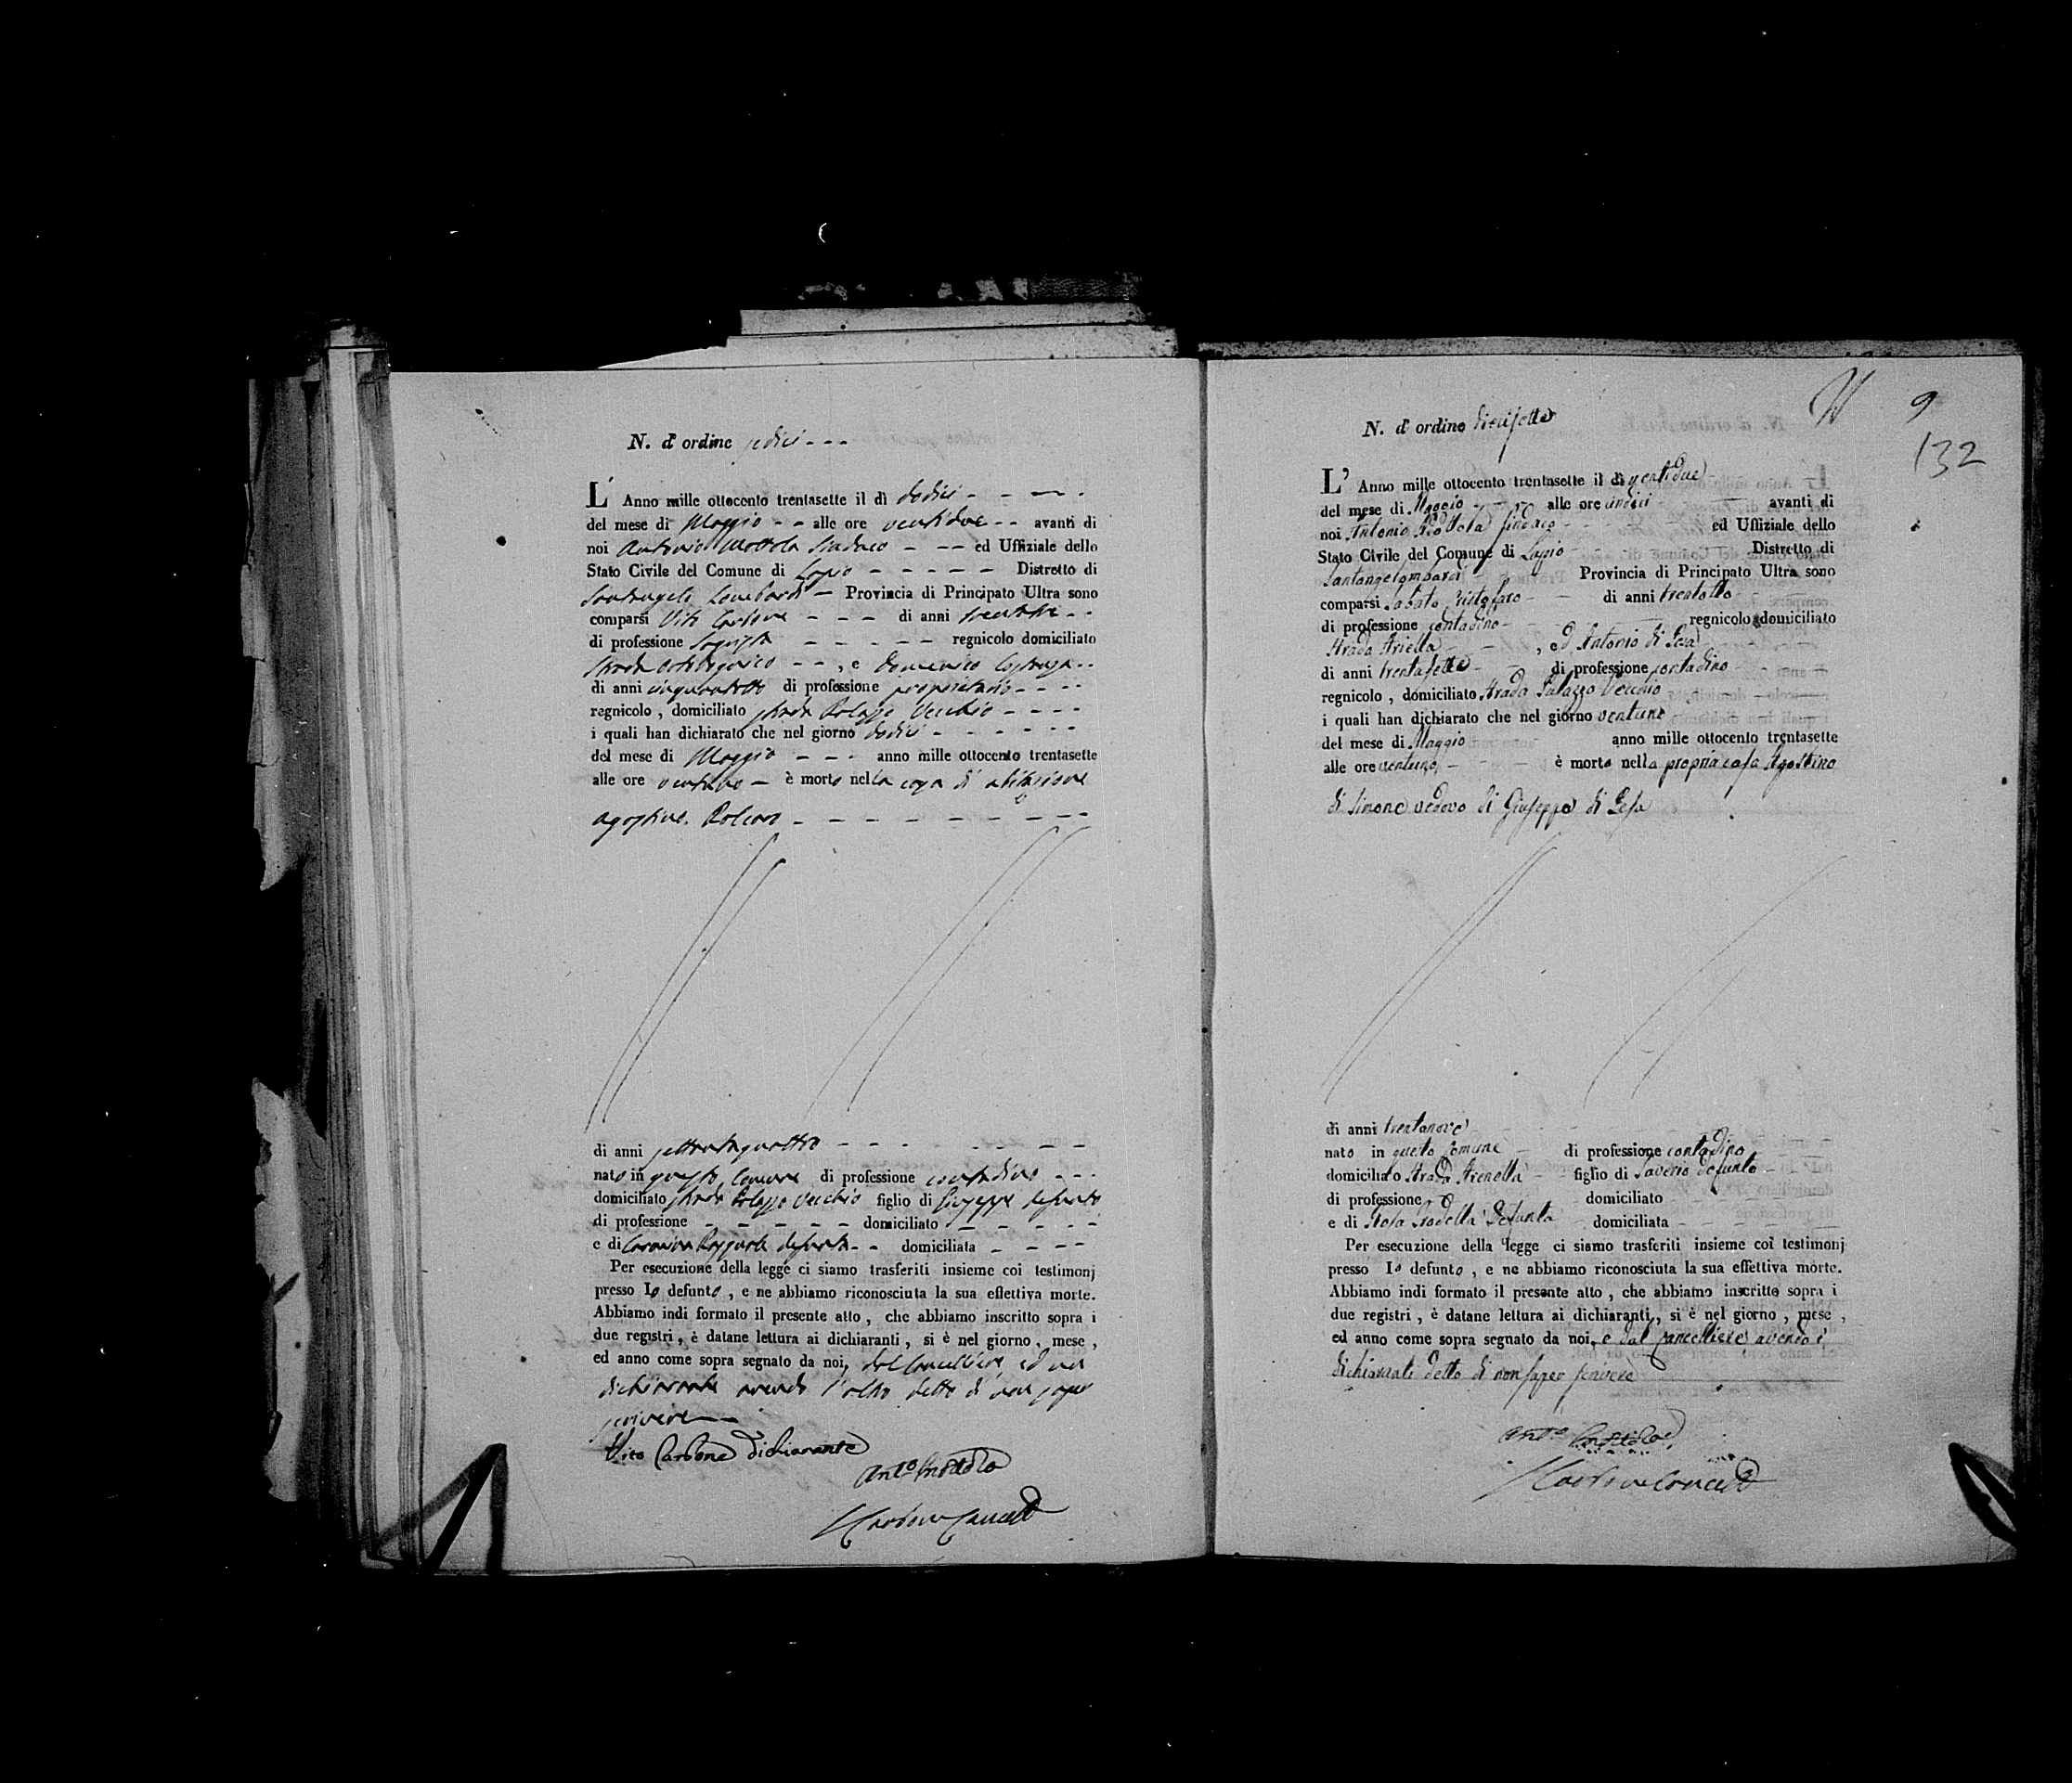 N. d' ordine sedici
L' Anno mille ottocento trentasette il dì dodici
del mese di Maggio alle ore ventidue avanti di
noi Antonio Mottola Sindaco ed Uffiziale dello
Stato Civile del Comune di Lapio Distretto di
Santangelo Lombardi Provincia di Principato Ultra sono
comparsi Vito Carbone di anni
di professione regnicolo domiciliato
Strada , e Domenico
di anni cinquantotto di professione proprietario
regnicolo , domiciliato strada Palazzo Vecchio
i quali han dichiarato che nel giorno dodici
del mese di Maggio anno mille ottocento trentasette
alle ore è morto nella casa di abitazione
Agostino
di anni settantaquattro
nato in questo Comune di professione contadino
domiciliato strada Palazzo Vecchio figlio di Giuseppe defunto
di professione domiciliato
e di defunta domiciliata
Per esecuzione della legge ci siamo trasferiti insieme coi testimonj
presso lo defunto , e ne abbiamo riconosciuta la sua effettiva morte.
Abbiamo indi formato il presente atto , che abbiamo inscritto sopra i
due registri , è datane lettura ai dichiaranti , si è nel giorno , mese ,
ed anno come sopra segnato da noi, dal Cancelliere ed un
dichiarante avendo l'altro detto di non saper
scrivere
Vito Carbone dichiarante
Ant.o Mottola
Carbone Cancell
9
132
N. d' ordine diecisette
L' Anno mille ottocento trentasette il dì ventidue
del mese di Maggio alle ore undici avanti di
noi Antonio Mottola Sindaco ed Uffiziale dello
Stato Civile del Comune di Lapio Distretto di
Santangelombardi Provincia di Principato Ultra sono
comparsi Sabato Cristofaro di anni trentotto
di professione contadino regnicolo domiciliato
Strada Ariella , ed Antonio di Jesa
di anni trentasette di professione contadino
regnicolo , domiciliato Strada Palazzo Vecchio
i quali han dichiarato che nel giorno ventuno
del mese di Maggio anno mille ottocento trentasette
alle ore ventuno è morto nella propria casa Agostino
di Simone vedovo di Giuseppa di Jesa
di anni trentanove
nato in questo Comune di professione contadino
domiciliato Strada figlio di Saverio defunto
di professione domiciliato
e di Rosa defunta domiciliata
Per esecuzione della legge ci siamo trasferiti insieme coi testimonj
presso lo defunto , e ne abbiamo riconosciuta la sua effettiva morte.
Abbiamo indi formato il presente atto , che abbiamo inscritto sopra i
due registri , è datane lettura ai dichiaranti , si è nel giorno , mese ,
ed anno come sopra segnato da noi, e dal Cancelliere, avendo i
dichiaranti detto di non saper scrivere
Ant.o Mottola
Carbone Cancell